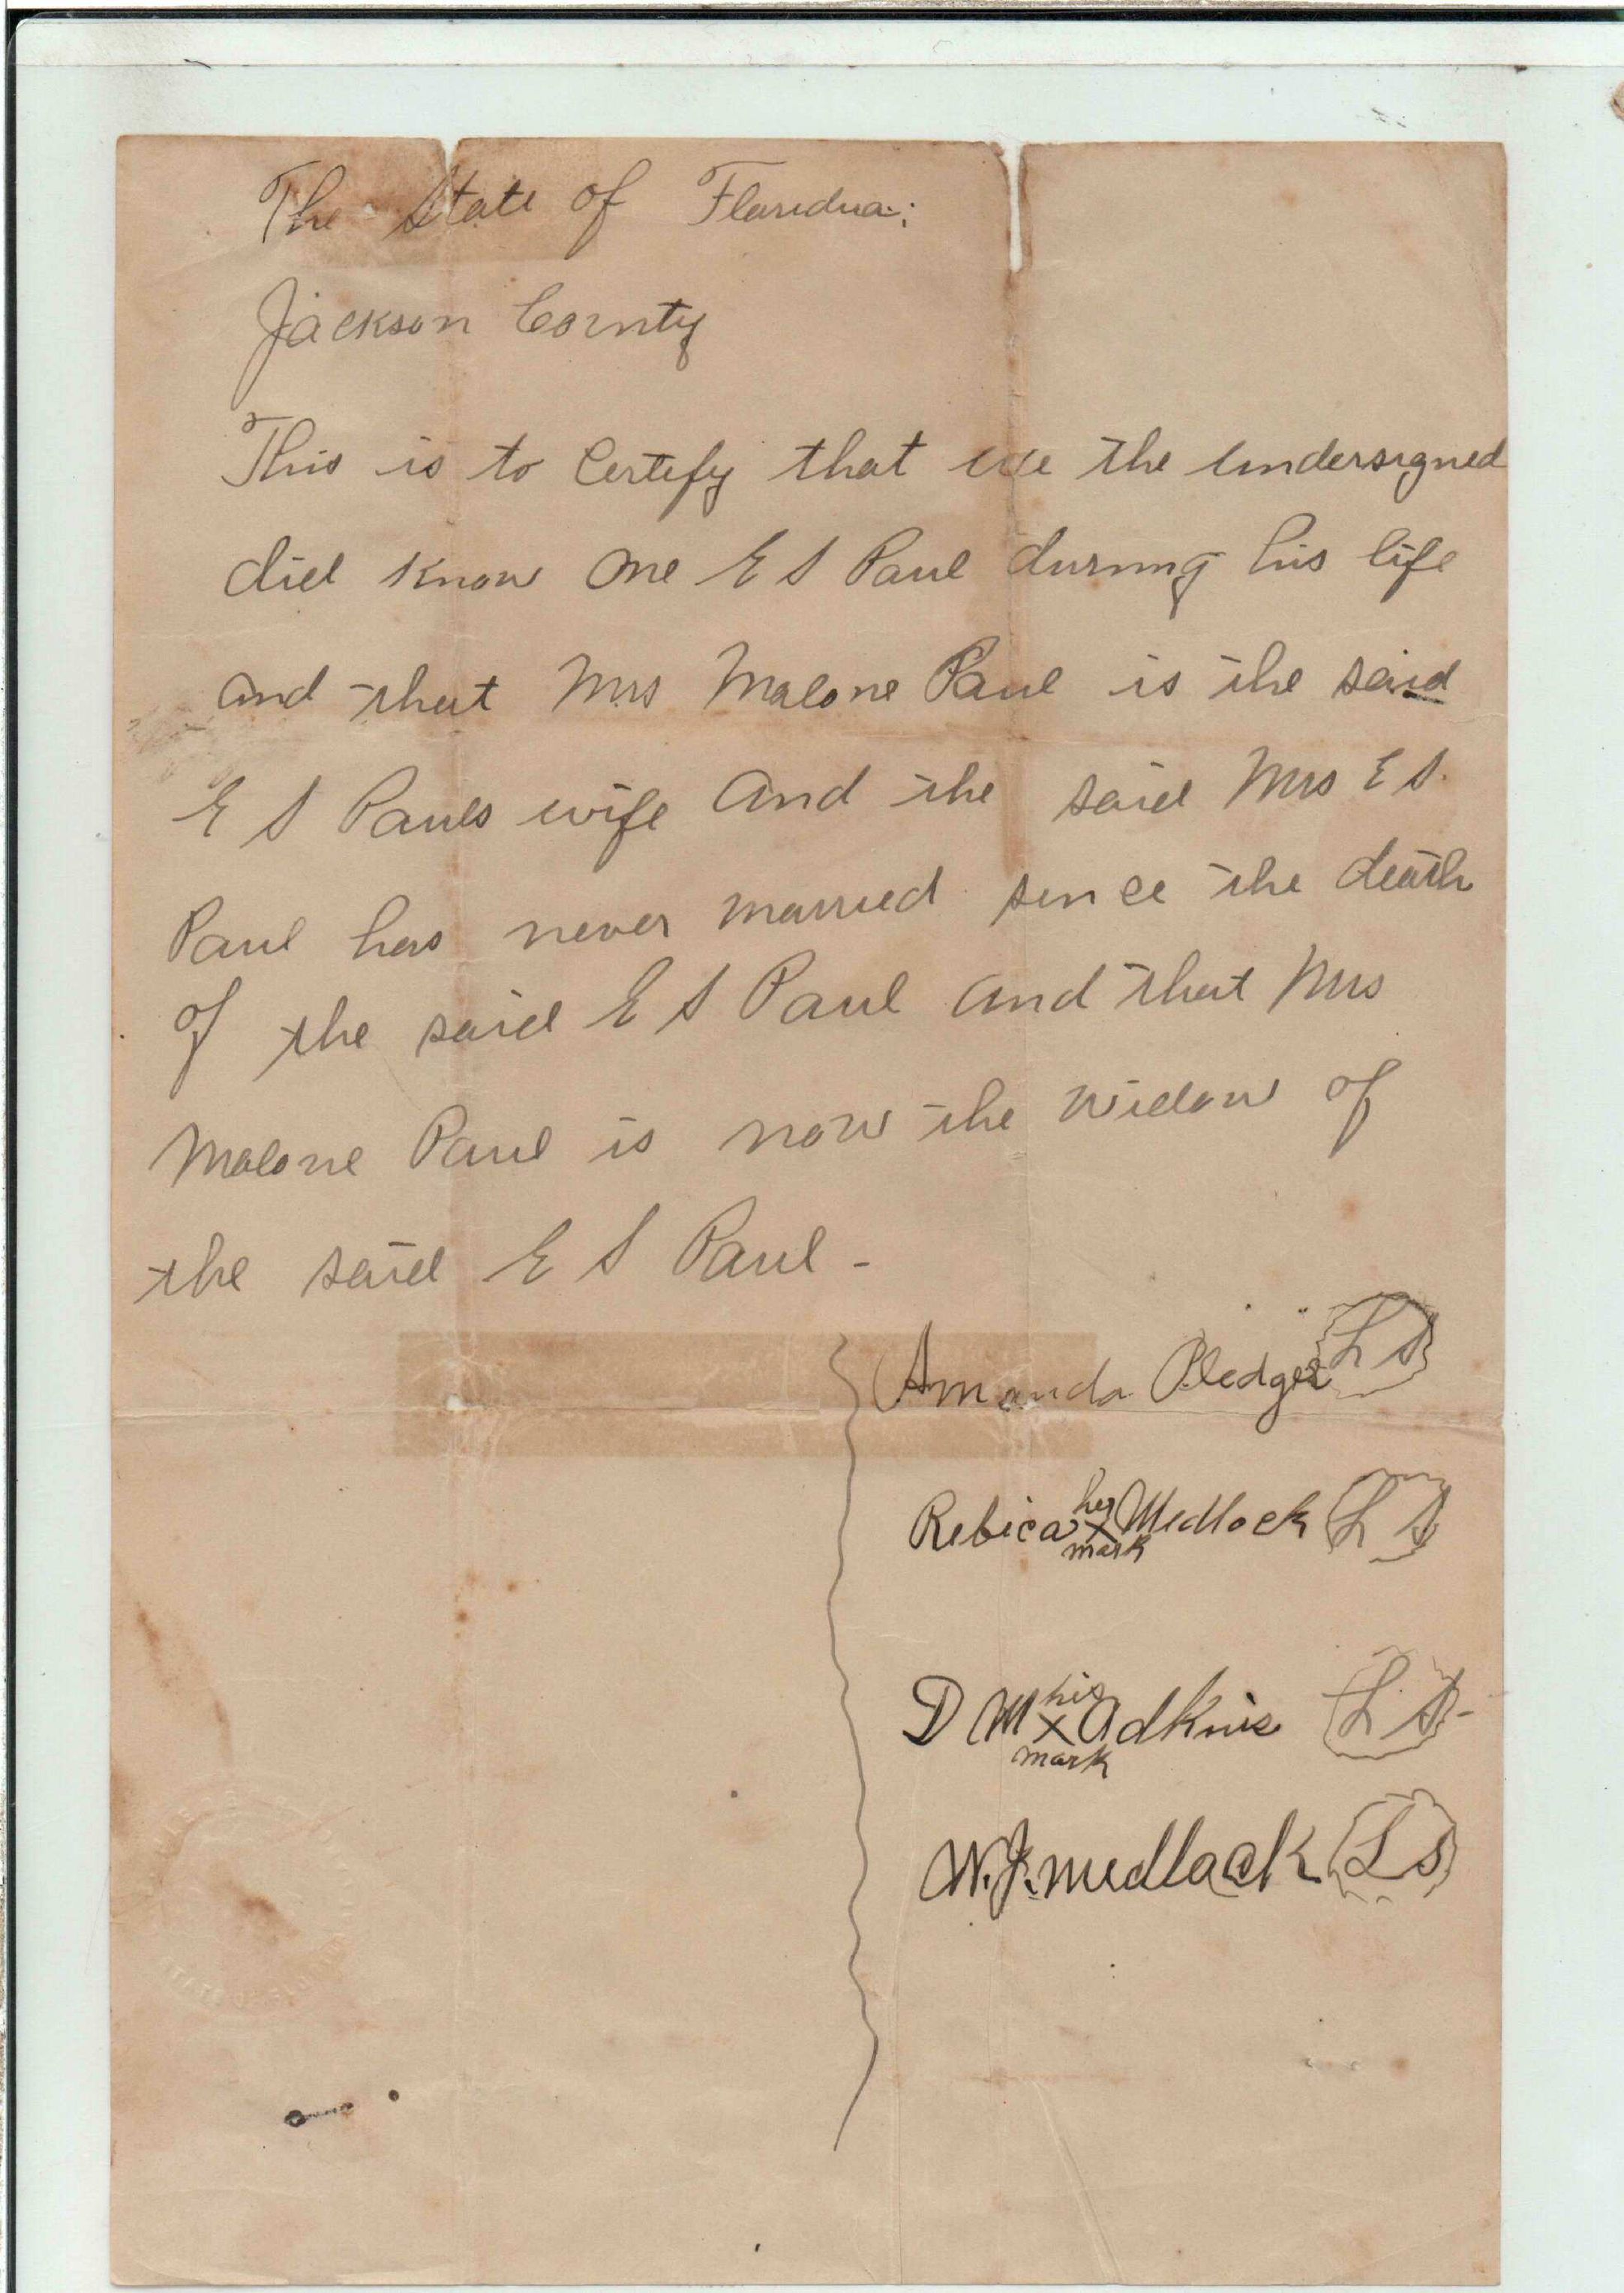 The State of Floridia:
Jackson County
This is to Certify that we the undersigned
did know one E S Paul during his life
and that Mrs Malone Paul is the said
E S Pauls wife and the said Mrs E S.
Paul has never married since the death
of the said E S Paul and that Mrs
Malone Paul is now the widow of
the said E S Paul -
Amanda Pledger L S
her
Rebica X Medlock L S
mark
his
D M X Adkins L S -
mark
W.J. Medlock L S
STATE OF FLORIDA